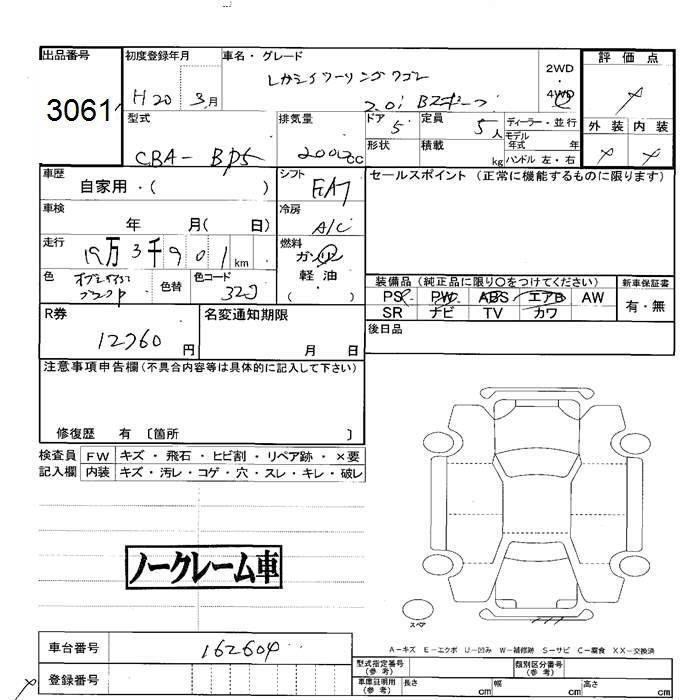 出品番号 初度登録年月 車名・グレード 2WD・4WD 評価点
3061
H20 3月 レガシィツーリングワゴン
2.0i
型式 排気量 ドア 5 定員 5人 ディーラー・並行
モデル年式 年
外装 内装
CBA-BP5 2000cc 形状 積載 kg ハンドル 左・右
車歴 シフト セールスポイント (正常に機能するものに限ります)
自家用・( ) FAT
車検 冷房
年 月( 日) A/C
走行 19万3千901km 燃料
ガソリン
軽油
( )
色 色替 色コード 320
装備品 (純正品に限り○をつけてください) 新車保証書
PS PW ABS エアB AW 有・無
SR ナビ TV カワ
R券 名変通知期限 後日品
12760円 月 日
注意事項申告欄(不具合内容等は具体的に記入して下さい)
修復歴 有 〔箇所 〕
検査員 FW キズ・飛石・ヒビ割・リペア跡・×要
記入欄 内装 キズ・汚レ・コゲ・穴・スレ・キレ・破レ
ノークレーム車
スペア
車台番号 162604
A-キズ E-エクボ U-凹み W-補修跡 S-サビ C-腐食 XX-交換済
登録番号
型式指定番号(参考) 類別区分番号(参考)
車庫証明用(参考) 長さ cm 幅 cm 高さ cm